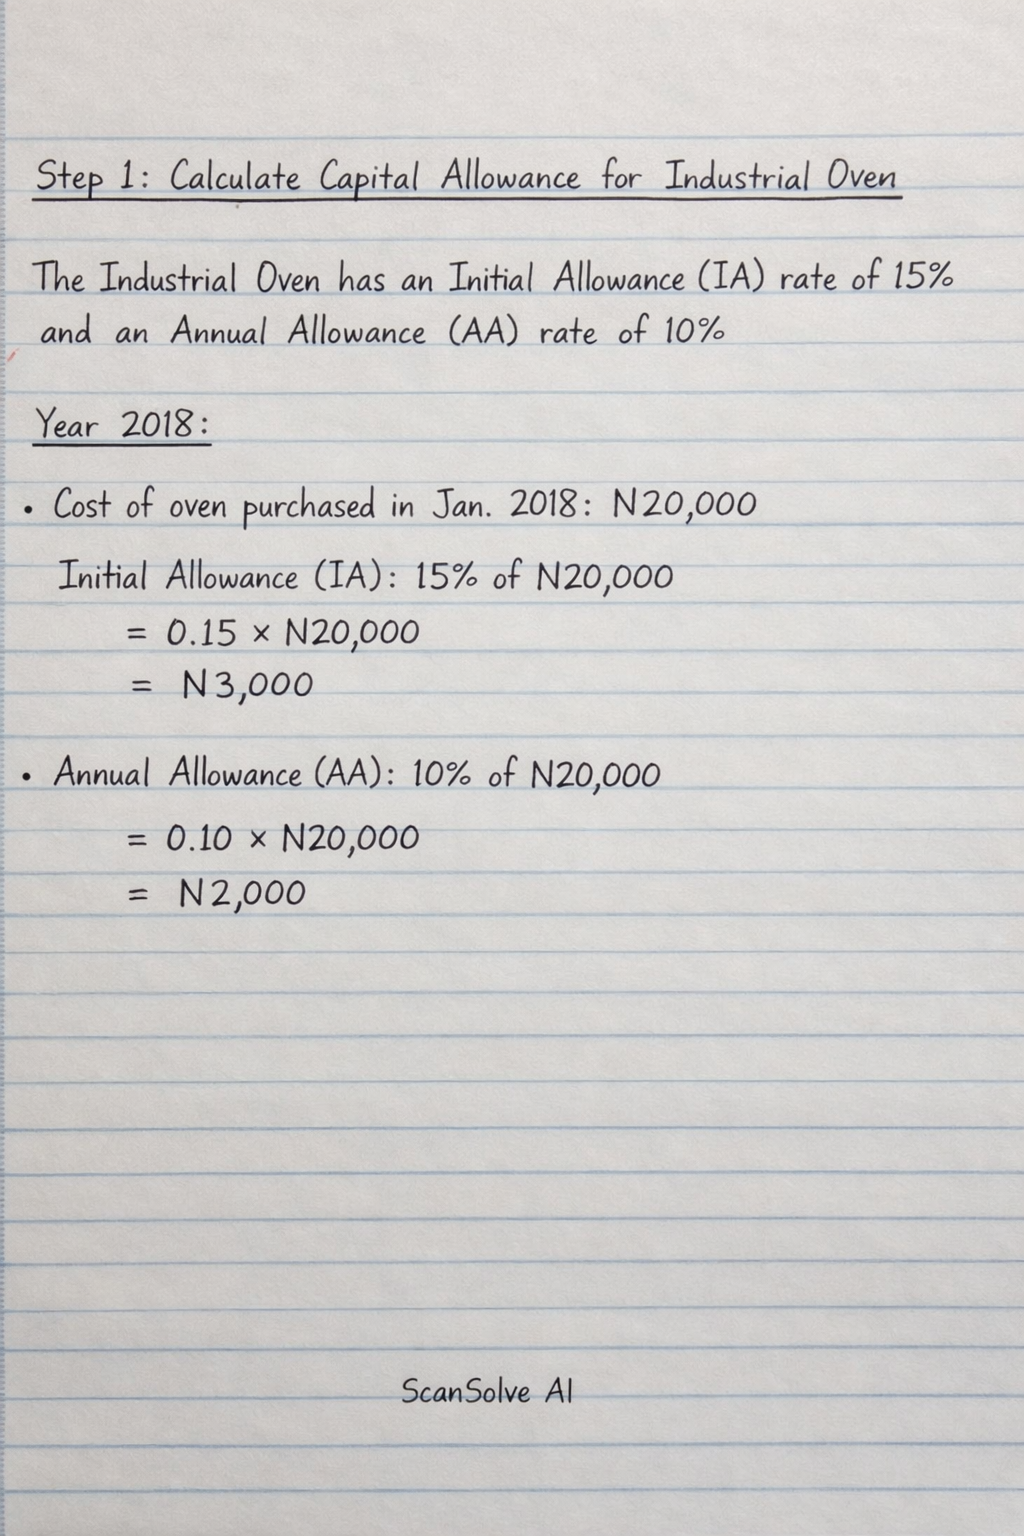 Step 1: Calculate Capital Allowance for Industrial Oven
The Industrial Oven has an Initial Allowance (IA) rate of 15%
and an Annual Allowance (AA) rate of 10%
Year 2018:
• Cost of oven purchased in Jan. 2018: N20,000
Initial Allowance (IA): 15% of N20,000
= 0.15 × N20,000
= N3,000
• Annual Allowance (AA): 10% of N20,000
= 0.10 × N20,000
= N2,000
ScanSolve AI